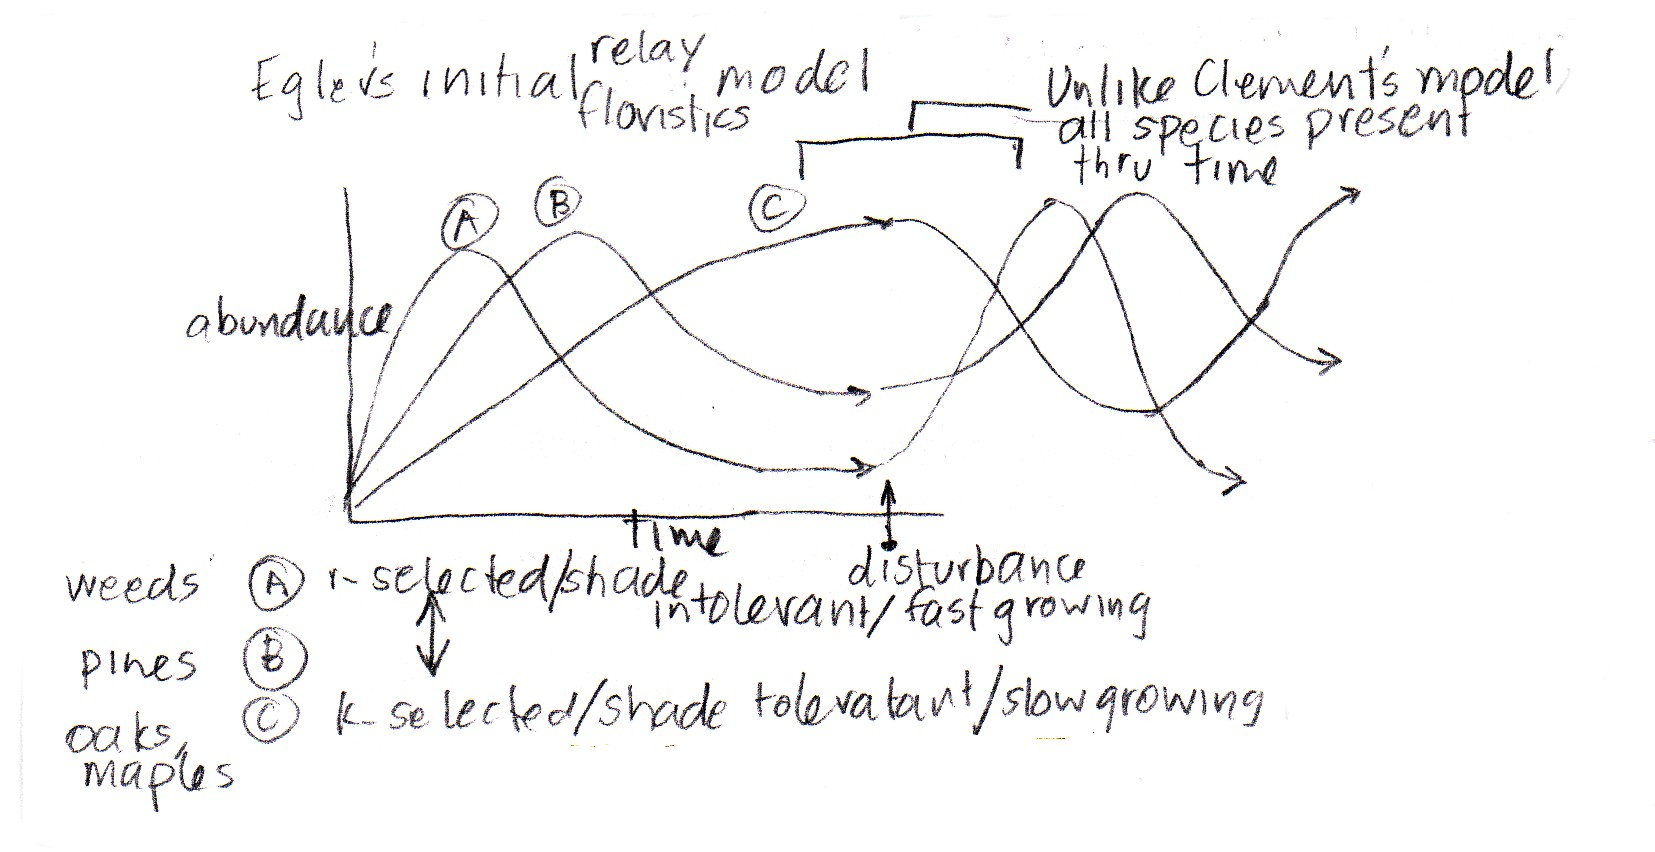 Egler's initial relay floristics model
Unlike Clement's model
all species present
thru time
A
B
C
abundance
time
disturbance
weeds A r-selected/shade
intolerant/fast growing
pines B
oaks, C K-selected/shade toleratant/slow growing
maples